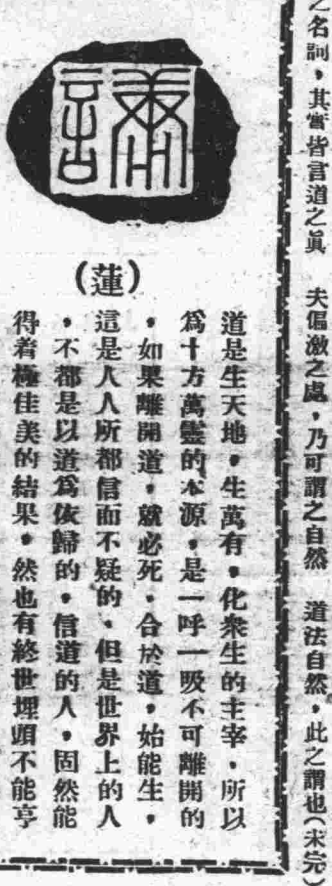 之名詞，其實皆言道之眞　夫偏激之處，乃可謂之自然　道法自然，此之謂也（未完）
（蓮）
道是生天地，生萬有，化衆生的主宰，所以
爲十方萬靈的本源，是一呼一吸不可離開的
，如果離開道，就必死，合於道，始能生，
這是人人所都信而不疑的，但是世界上的人
，不都是以道爲依歸的，信道的人，固然能
得着極佳美的結果，然也有終世埋頭不能享